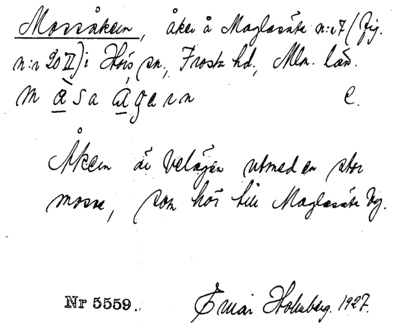 Mossåkern, åker å Maglasäte n:r 7 (fig.
n:r 20 II) i Hörs sn, Frosta hd, Mlm. län.
måsaågern e.
Åkern är belägen utmed en stor
mosse, som hör till Maglasäte by.
Nr 5559. Einar Holmberg. 1927.